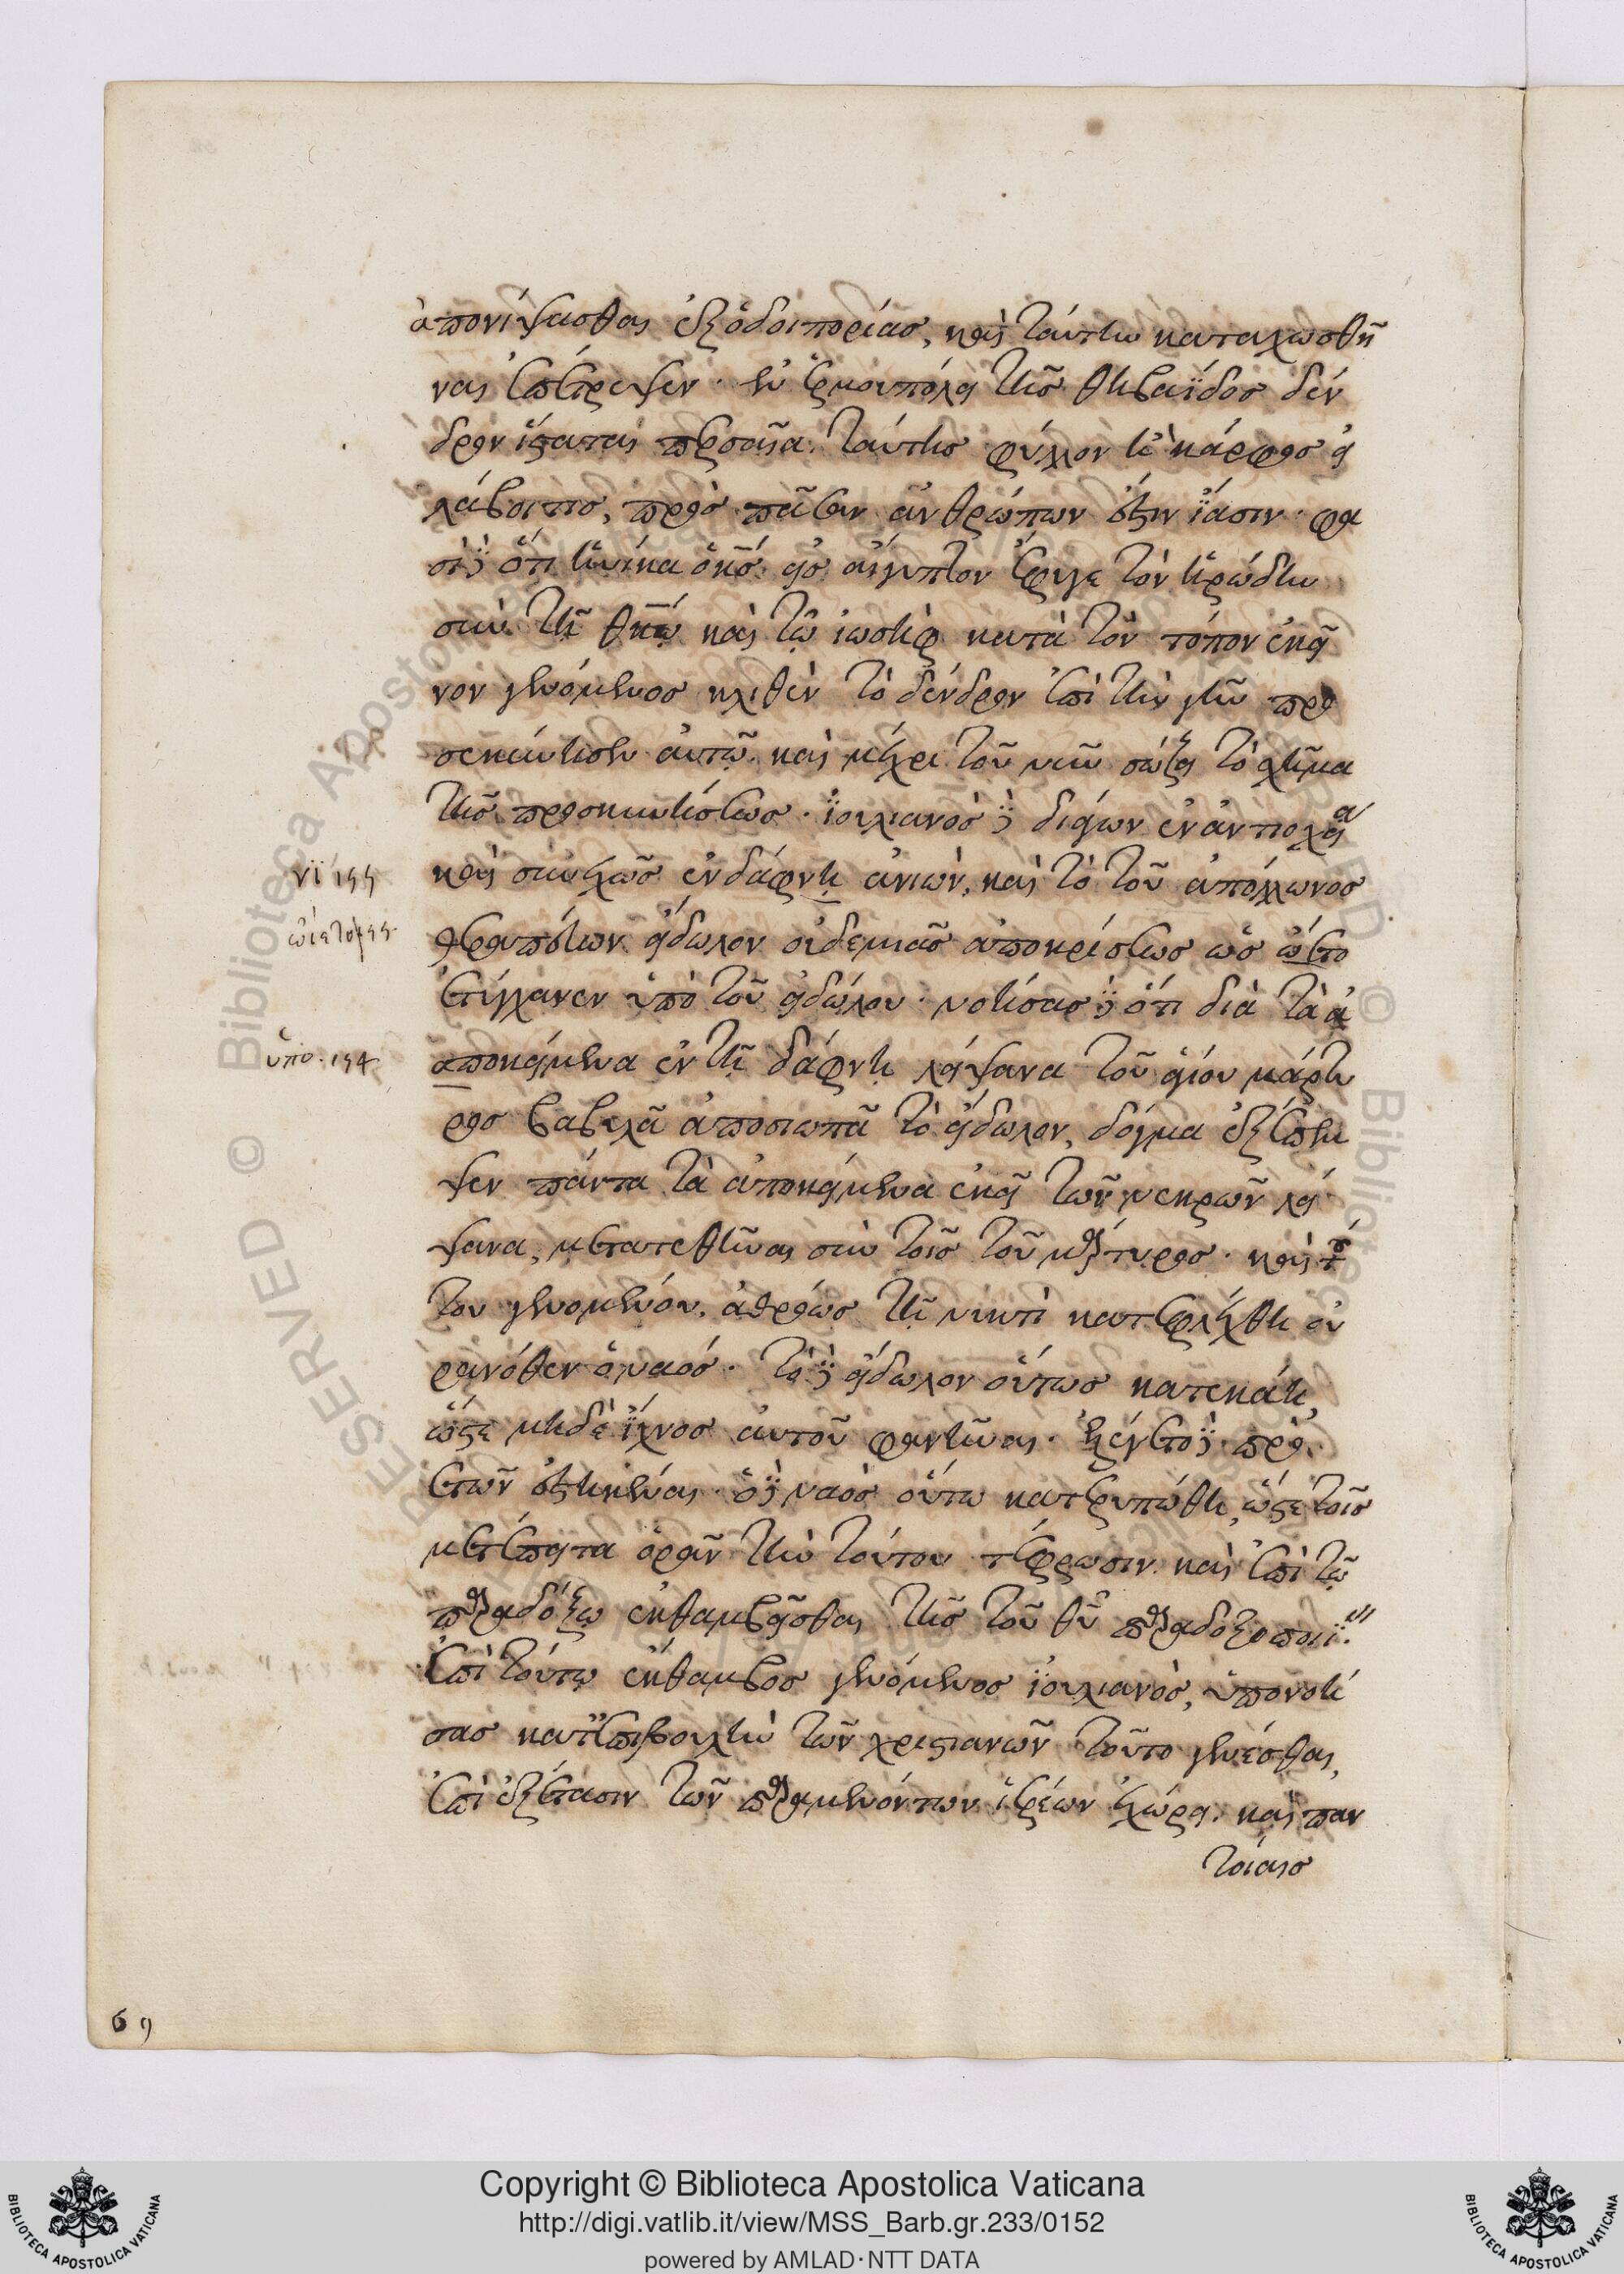 ἀπονίψασθαι ἐξ ὁδοιπορίας, καὶ ταύτην καταχωσθῆ
ναι ἐπέτρεψεν. ἐν ἑρμουπόλει τῆς θηβαΐδος δέν
δρον ἵσταται περσαῖα. ταύτης φύλλον ἢ κάρφος εἰ
λάβοι τις, πρὸς πᾶσαν ἀνθρώπων ἐστὶν ἴασιν. φα
σὶ δὲ ὅτι ἡνίκα ὁ κς εἰς αἴγυπτον ἔφυγε τὸν ἡρώδην
σὺν τῇ θκῳ καὶ τῷ ἰωσὴφ κατὰ τὸν τόπον ἐκεῖ
νον γενόμενος κλιθὲν τὸ δένδρον ἐπὶ τὴν γῆν προ
σεκύνησεν αὐτῷ. καὶ μέχρι τοῦ νῦν σώζει τὸ σχῆμα
τῆς προσκυνήσεως. ἰουλιανὸς δὲ διάγων ἐν ἀντιοχεία
καὶ συνεχῶς ἐν δάφνῃ ἀνιὼν, καὶ τὸ τοῦ ἀπόλλωνος
θεραπεύων εἴδωλον οὐδεμιᾶς ἀποκρίσεως ὡς ᾤετο
ἐτύγχανεν ὑπὸ τοῦ εἰδώλου. νοήσας δὲ ὅτι διὰ τὰ ἀ
ἀποκείμενα ἐν τῇ δάφνῃ λείψανα τοῦ ἁγίου μάρτυ
ρος βαβυλᾶ ἀποσιωπᾶ τὸ εἴδωλον, δόγμα ἐξέπεμ
ψεν πάντα τὰ ἀποκείμενα ἐκεῖ τῶν νεκρῶν λεί
ψανα, μετατεθῆναι σὺν τοῖς τοῦ μάρτυρος. καὶ τού
του γενομένου, ἀθρόως τῇ νυκτὶ κατεφλέχθη οὐ
ρανόθεν ὁ ναός. τὸ δὲ εἴδωλον οὕτως κατεκάη,
ὥστε μηδὲ ἴχνος αὐτοῦ φανῆναι. ἐλέγετο δὲ πρὸ
ἐτῶν ἑστηκέναι. ὁ δὲ ναὸς οὕτω κατερυπώθη, ὥστε τοῖς
μετέπειτα ὁρᾶν τὴν τούτου τέφρωσιν. καὶ ἐπὶ τῷ
παραδόξῳ ἐκθαμβεῖσθαι τῆς τοῦ θῦ παραδοξοποιΐ
ἐπὶ τούτῳ ἔκθαμβος γενόμενος ἰουλιανὸς, ὑπονοή
σας κατ' ἐπιβουλὴν τῶν χριστιανῶν τοῦτο γενέσθαι,
ἐπὶ ἐξέτασιν τῶν παραμενόντων ἱερέων ἐχώρει. καὶ παν
τοίαις
69
Copyright © Biblioteca Apostolica Vaticana
http://digi.vatlib.it/view/MSS_Barb.gr.233/0152
powered by AMLAD·NTT DATA
BIBLIOTECA APOSTOLICA VATICANA
BIBLIOTECA APOSTOLICA VATICANA